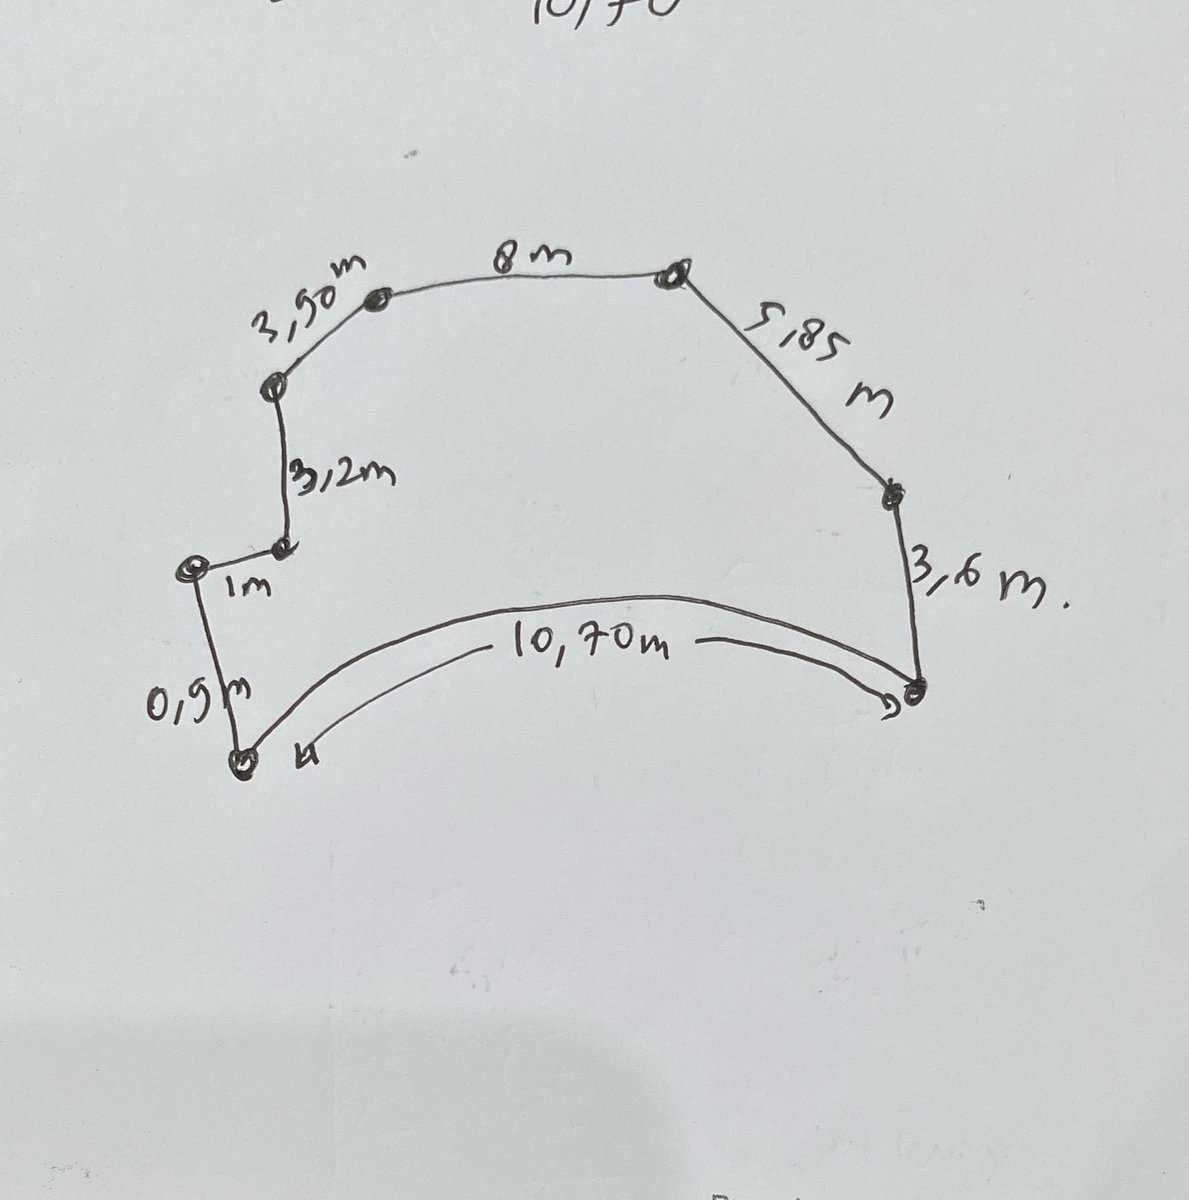 10,70
8 m
3,90 m
5,85 m
3,2m
1m
3,6 m.
10,70m
0,9m